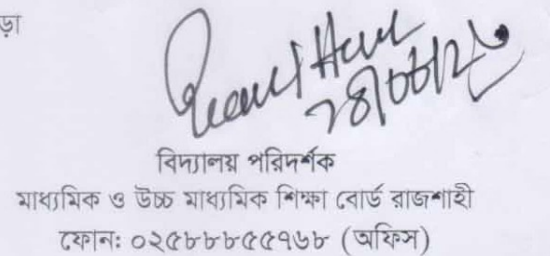 ড়া
বিদ্যালয় পরিদর্শক
মাধ্যমিক ও উচ্চ মাধ্যমিক শিক্ষা বোর্ড রাজশাহী
ফোন: ০২৫৮৮৮৫৫৭৬৮ (অফিস)